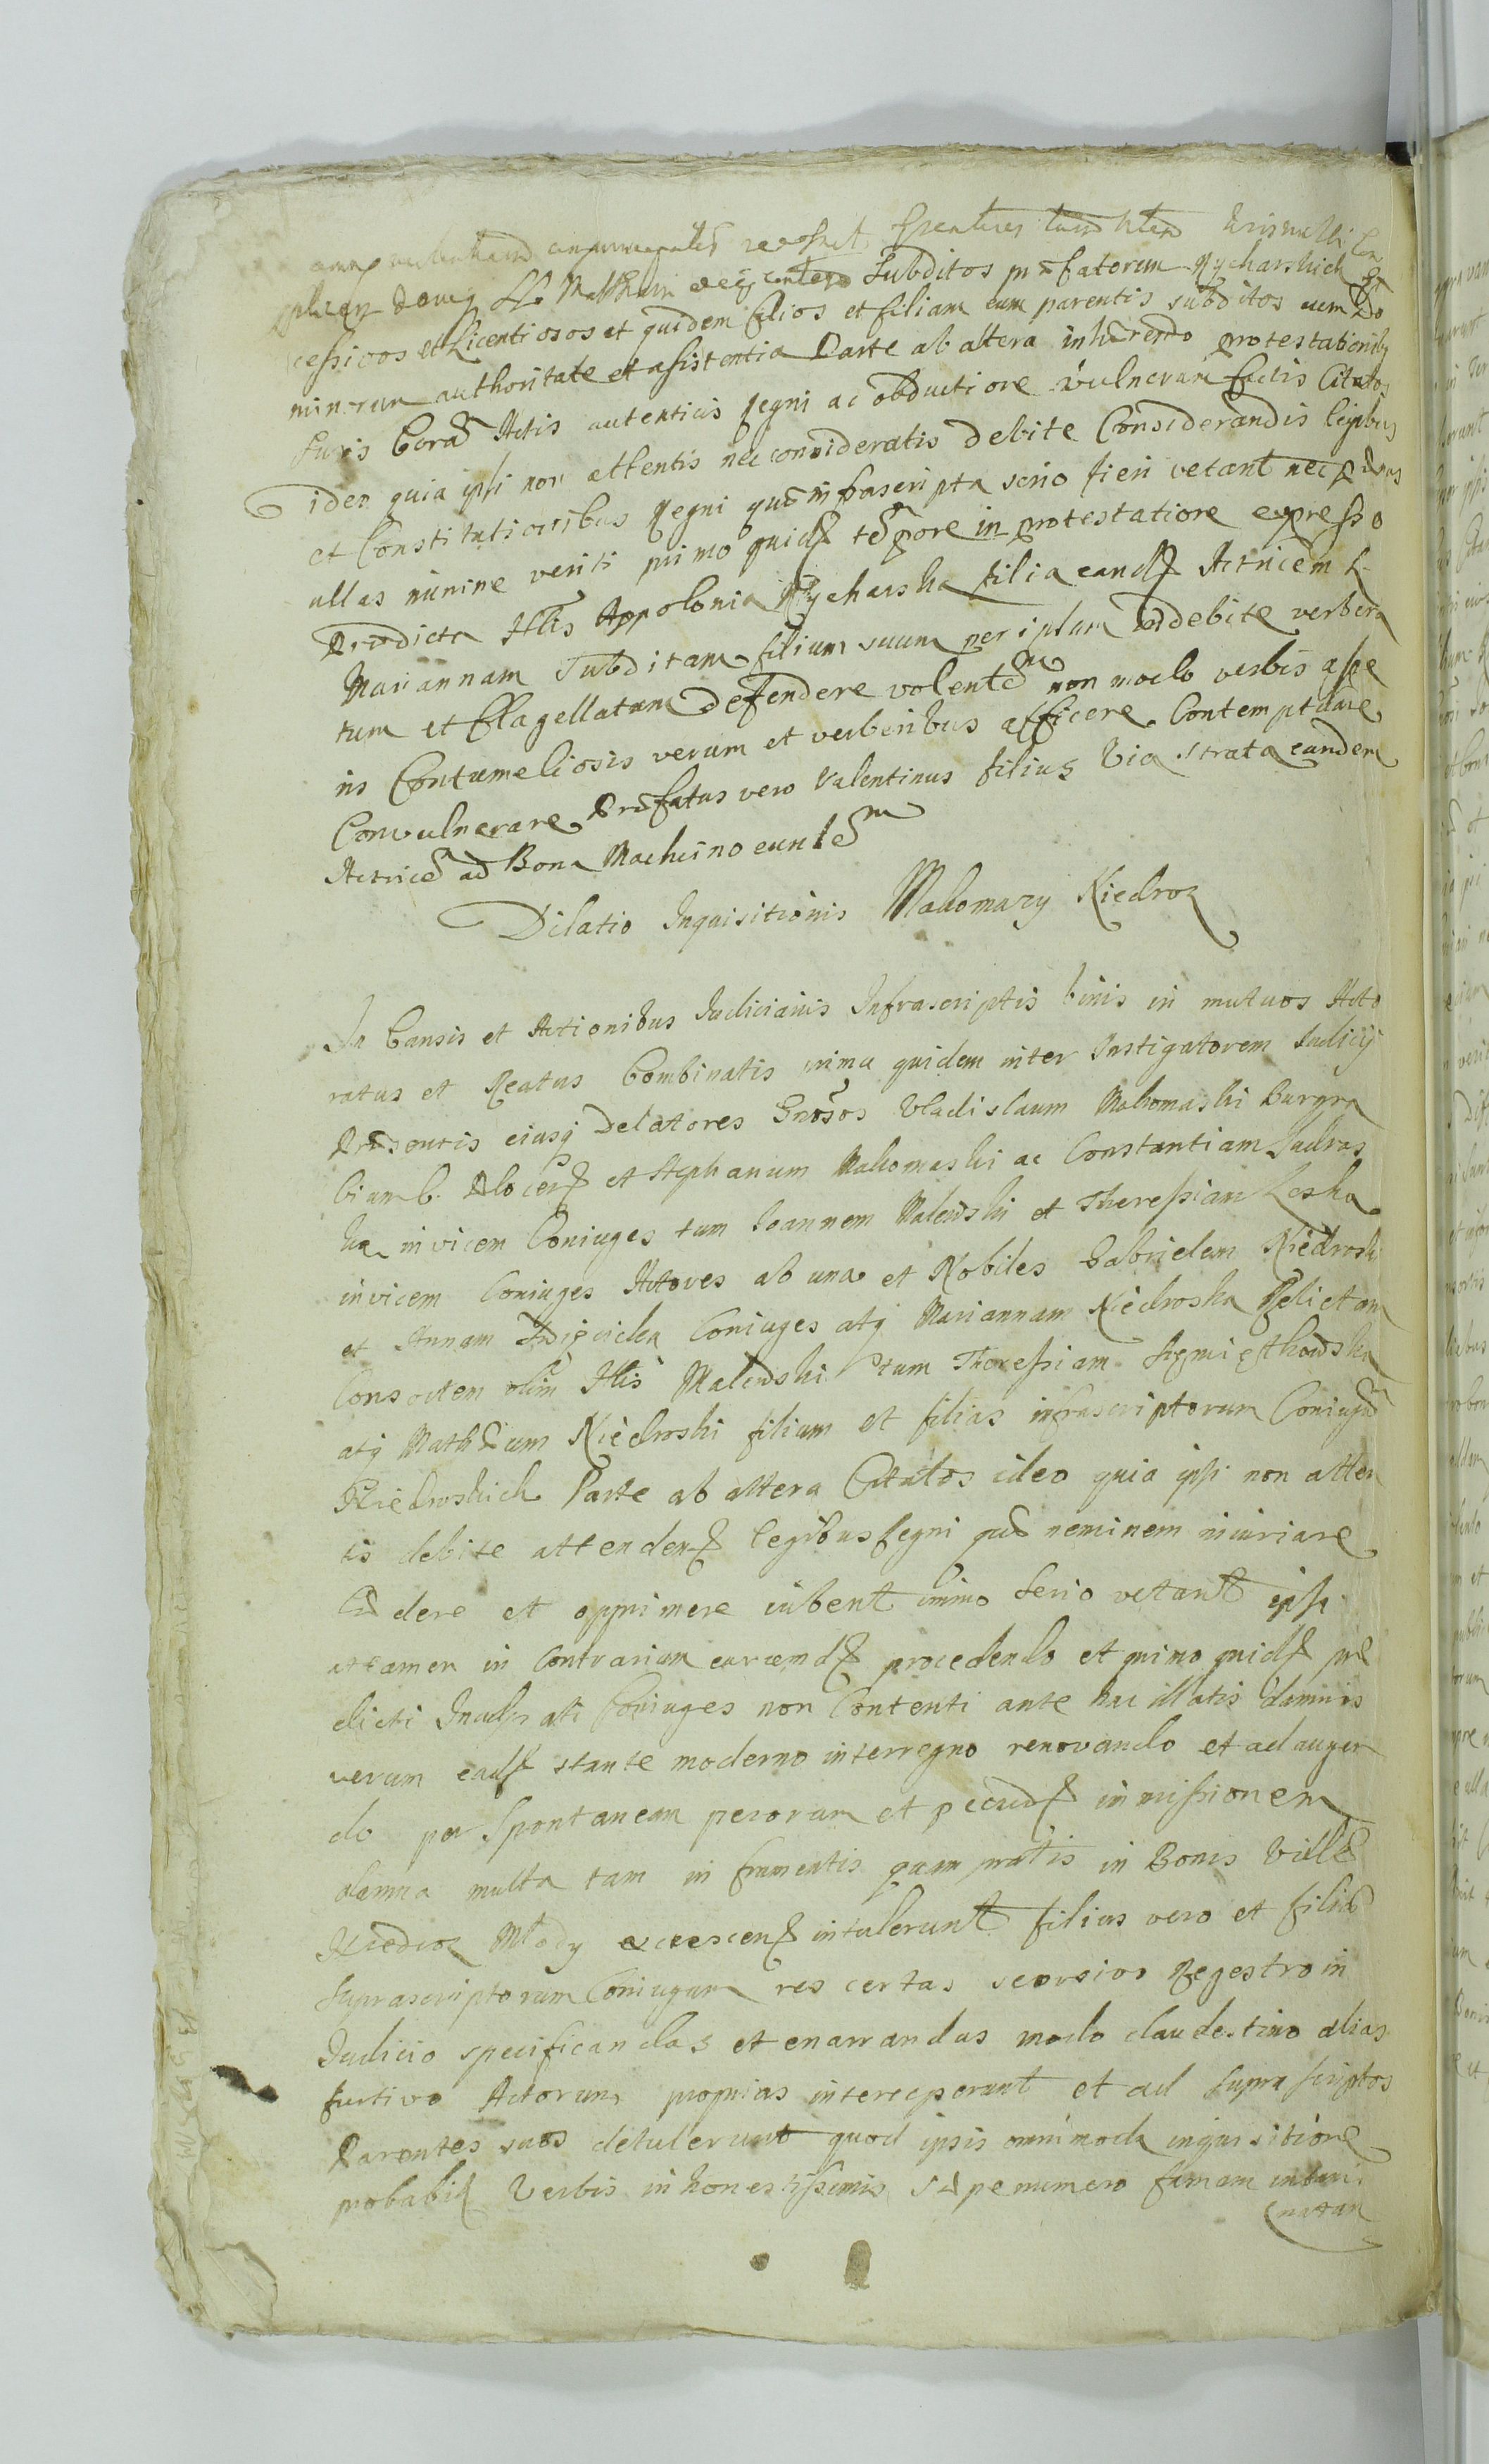 Subditos præfatorum Rycharskich
cessivos et Licentiosos et quidem filios et filiam eum parentis subditos eum Do
minorum authoritate et assistentia Parte ab altera inhærendo protestationibq
Iuris Corā Actis autenticis Regni ac obductione vulnerum factis Citatos
ideo quia ipsi non attentis nec consideratis debite Considerandis legibus
et Constitutionibus Regni quæ infrascripta serio fieri vetant nec pænas
ullas minime veriti primo quidē tēpore in protestatione expresso
Prædicta Hlis Appolonia Rycharska filia eandē Actricem L.
Mariannam Subditam filium suum per ipsam indebite verbera
tum et flagellatum Defendere volentē non modo verbis aspe
ris Contumeliosis verum et verberibus afficere Contemptare
Convulnerare Præfatus vero Valentinus filius Via strata eandem
Actricē ad Bona Machcino euntēm
Dilatio Inquisitionis Makomazy Niedroz
In Causis et Actionibus Iudiciariis Infrascriptis binis in mutuos Acto
ratus et Reatus Combinatis prima quidem inter Instigatorem Iudicij
Præsentis eiusq Delatores Gnosos Vladislaum Makomaski Burgra
bium C. Plocen et Stephanum Makomaski ac Constantiam
ka invicem Coniuges tum Ioannem Malewski et Theressiam Leska
invicem Coniuges Actores ab una et Nobiles Gabrielem Niedroski
et Annam Coniuges atq Mariannam Niedroska Relictam
Consortem olim Hlis Malewski tum Theressiam
atq Mathæum Niedroski filium et filias infrascriptorum Coniugū
Niedroskich Parte ab altera Citatos ideo quia ipsi non atten
tis debite attenden legibus Regni quæ neminem iniuriare
Lædere et opprimere iubent immo serio vetant ipsi
attamen in Contrarium earumdē procedendo et primo quidē præ
dicti Inculpati Coniuges non Contenti ante hac illatis damnis
verum eadē stante moderno interregno renovando et adaugen
do per Spontaneam pecorum et pecudē inmissionem
damna multa tam in frumentis quam pratis in Bonis Villæ
Niedroz Młody excrescen intulerunt filius vero et filiæ
Suprascriptorum Coniugum res certas seorsivo Regestro in
Iudicio specificandas et enarrandas modo clandestino alias
furtivo Actorum proprias interceperunt et ad supra scriptos
Parentes suos detulerunt quod ipsis omnimoda inquisitione
probabit Verbis inhonestissimis Sæpenumero famam